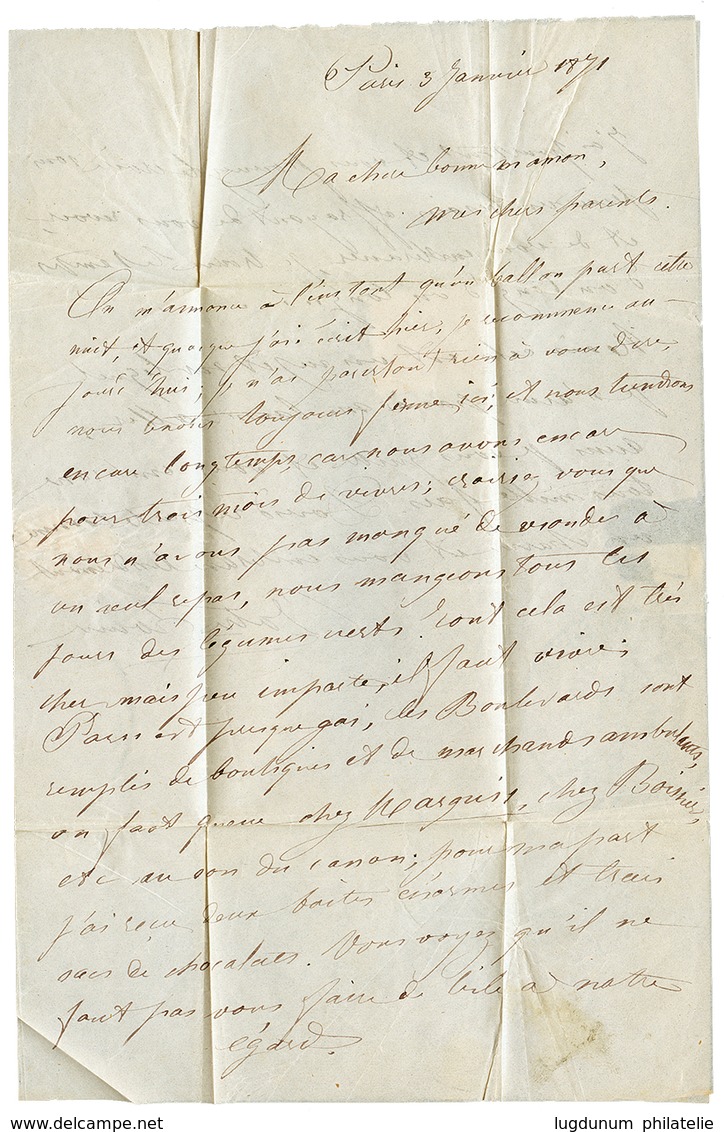 Paris 3 Janvier 1871
Ma chère bonne maman,
mes chers parents.
On m'annonce à l'instant qu'un ballon part cette
nuit, et quoique j'ai écrit hier, je recommence au-
jourd'hui; je n'ai pourtant rien à vous dire,
nous tenons toujours ferme ici, et nous tiendrons
encore longtemps car nous avons encore
pour trois mois de vivres; croiriez vous que
nous n'avons pas manqué de viandes à
un seul repas, nous mangeons tous les
jours des légumes verts! tout cela est très
cher mais peu importe, il faut vivre;
Paris est presque gai, les Boulevards sont
remplis de boutiques et de marchands ambulants,
on fait queue chez Marquis, chez Boissier,
etc au son du canon; pour ma part
j'ai reçu deux boites énormes et trois
sacs de chocolats. Vous voyez qu'il ne
faut pas vous faire de bile à notre
égard.
lugdunum philatelie